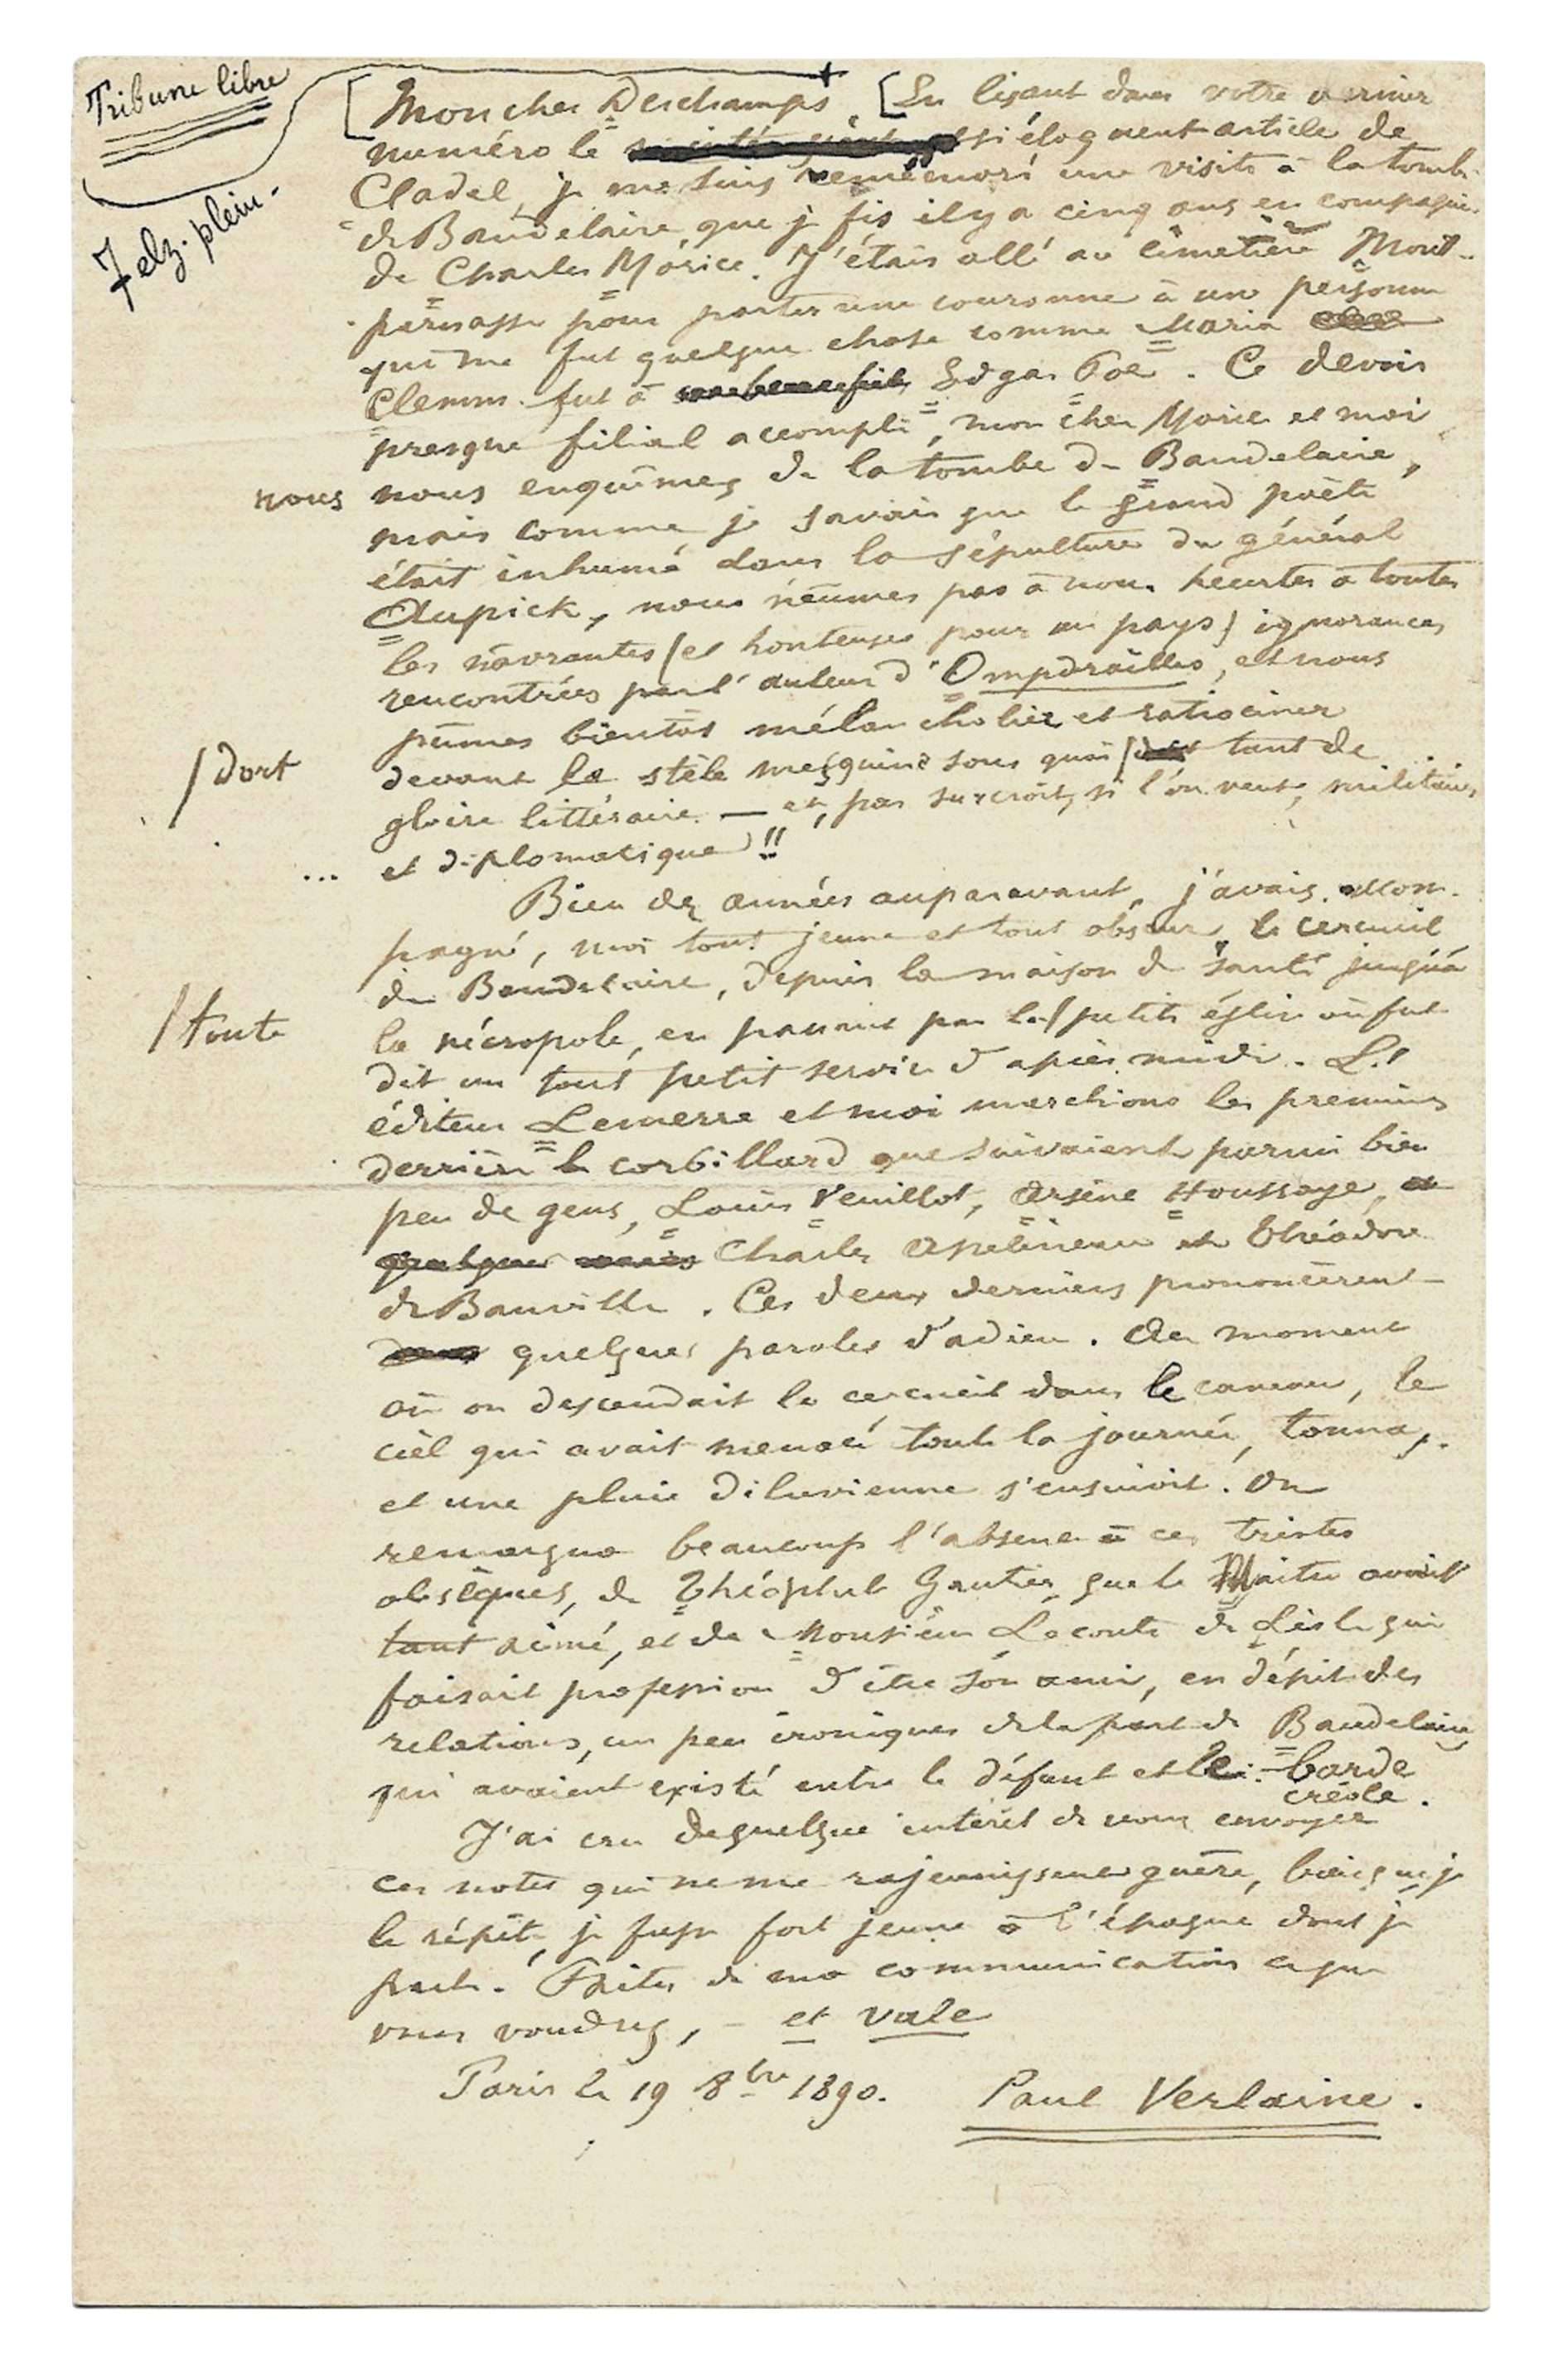 Tribune libre
7 elz. plein.
[Mon cher Deschamps, [En lisant dans votre dernier
numéro le si éloquent article de
Cladel, je me suis remémoré une visite à la tombe
de Baudelaire, que je fis il y a cinq ans en compagnie
de Charles Morice. J'étais allé au cimetière Mont-
parnasse pour porter une couronne à une personne
qui me fut quelque chose comme Maria
Clemm fut à Edgar Poe. Ce devoir
presque filial accompli, mon cher Morice et moi
nous
nous enquîmes de la tombe de Baudelaire,
mais comme je savais que le grand poète
était inhumé dans la sépulture du général
Aupick, nous n'eûmes pas à nous heurter à toutes
les navrantes (et honteuses pour un pays) ignorances
rencontrées par l'auteur d'Ompdrailles, et nous
pûmes bientôt mélancholier et ratiociner
/ dort
devant la stèle mesquine sous quoi / tant de
gloire littéraire — et, par surcroît, si l'on veut, militaire
... et diplomatique !!
Bien des années auparavant, j'avais accom-
pagné, moi tout jeune et tout obscur, le cercueil
de Baudelaire, depuis la maison de santé jusqu'à
/ toute
la nécropole, en passant par la / petite église où fut
dit un tout petit service d'après midi. L'
éditeur Lemerre et moi marchions les premiers
derrière le corbillard que suivaient parmi bien
peu de gens, Louis Veuillot, Arsène Houssaye,
Charles Asselineau et Théodore
de Banville. Ces deux derniers prononcèrent
quelques paroles d'adieu. Au moment
où on descendait le cercueil dans le caveau, le
ciel qui avait menacé toute la journée, tonna,
et une pluie diluvienne s'ensuivit. On
remarqua beaucoup l'absence à ces tristes
obsèques, de Théophile Gautier que le Maître avait
tant aimé, et de Monsieur Leconte de Lisle qui
faisait profession d'être son ami, en dépit des
relations, un peu ironiques de la part de Baudelaire
qui avaient existé entre le défunt et le barde
créole.
J'ai cru de quelque intérêt de vous envoyer
ces notes qui ne me rajeunissent guère, bien que je
le répète, je fusse fort jeune à l'époque dont je
parle. Faites de ma communication ce que
vous voudrez, - et vale
Paris le 19 8bre 1890. Paul Verlaine.